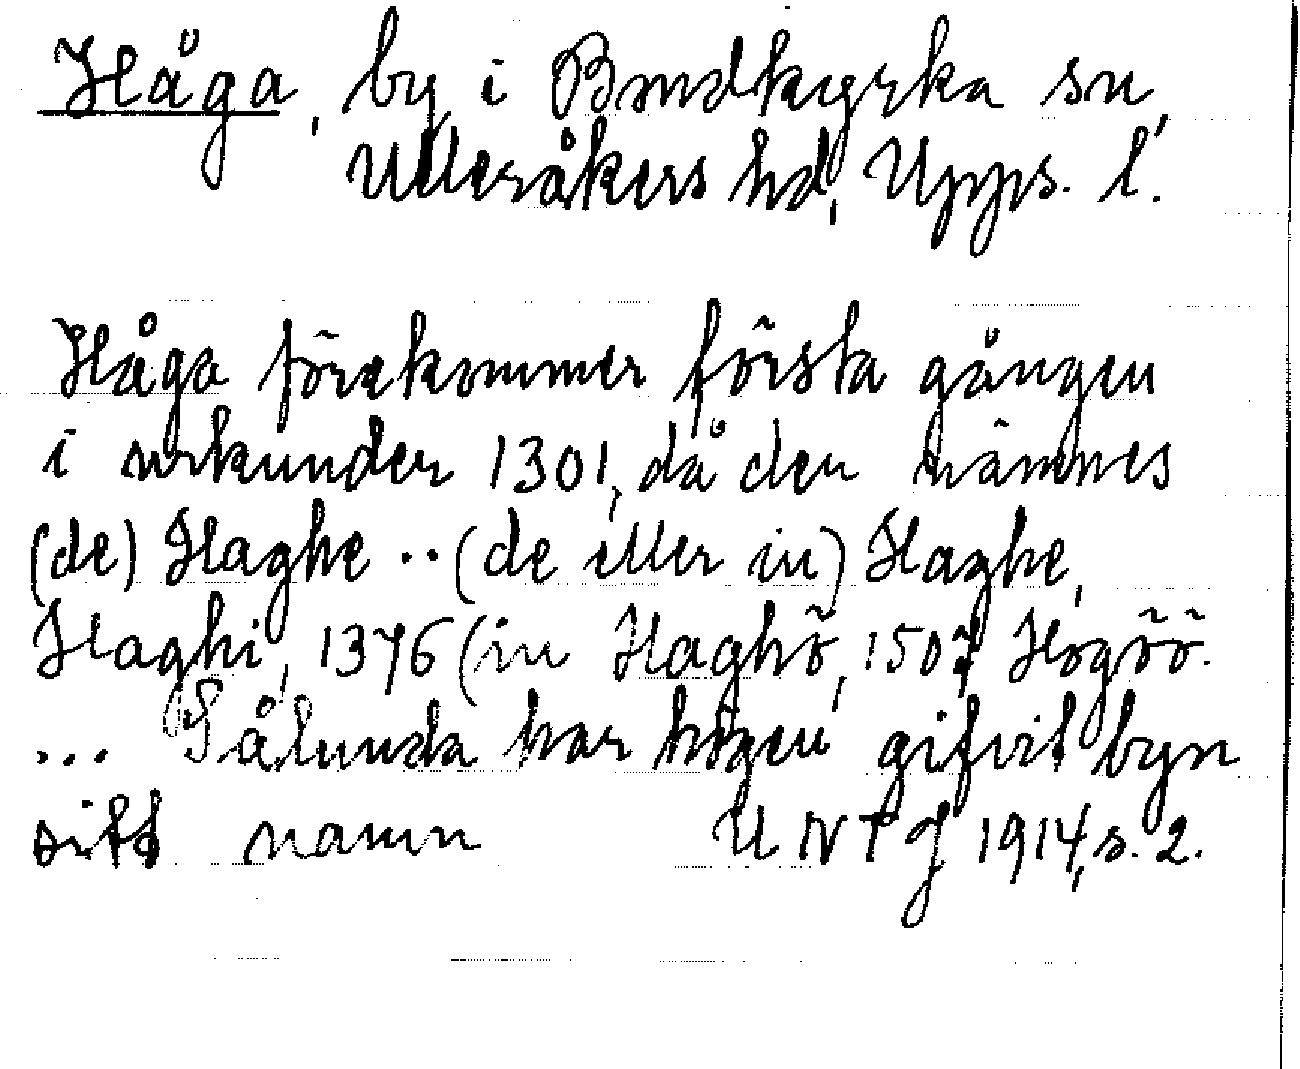 Håga, by i Bondkyrka sn,
Ulleråkers hd, Upps. l.
Håga förekommer första gången
i urkunder 1301, då den nämnes
(de) Haghe ·· (de eller in) Haghe,
Haghi, 1376 (in Haghö, 1507 Högöö.
... Sålunda har högen gifvit byn
sitt namn U N T J 1914, s. 2.